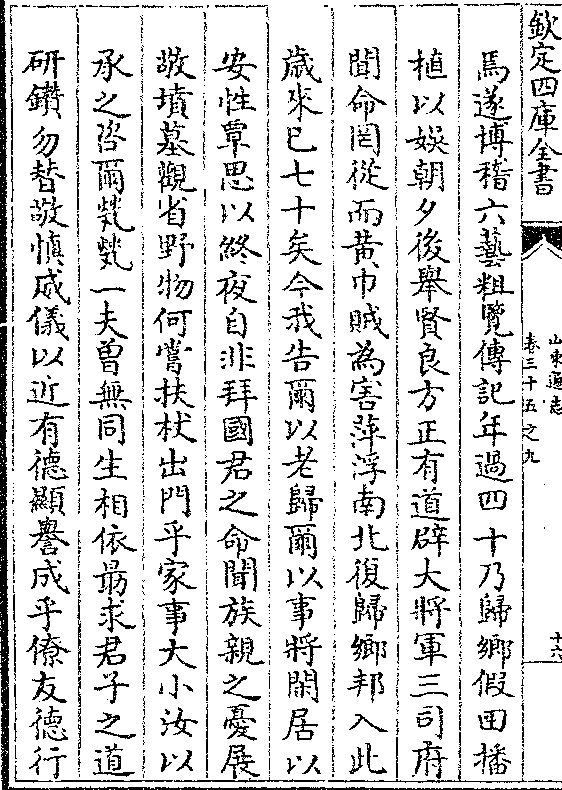 欽定四庫全書
山東通志
卷三十五之九
十六
焉遂博稽六藝粗覽傳記年過四十乃歸鄉假田播
植以娯朝夕後舉賢良方正有道辟大將軍三司府
聞命罔從而黃巾賊為害萍浮南北復歸鄉邦入此
歲來已七十矣今我告爾以老歸爾以事將閒居以
安性覃思以終夜自非拜國君之命聞族親之憂展
敬墳墓觀省野物何嘗扶杖出門乎家事大小汝以
承之咨爾煢煢一夫曾無同生相依朂求君子之道
研鑚勿替敬慎威儀以近有德顯譽成乎僚友德行